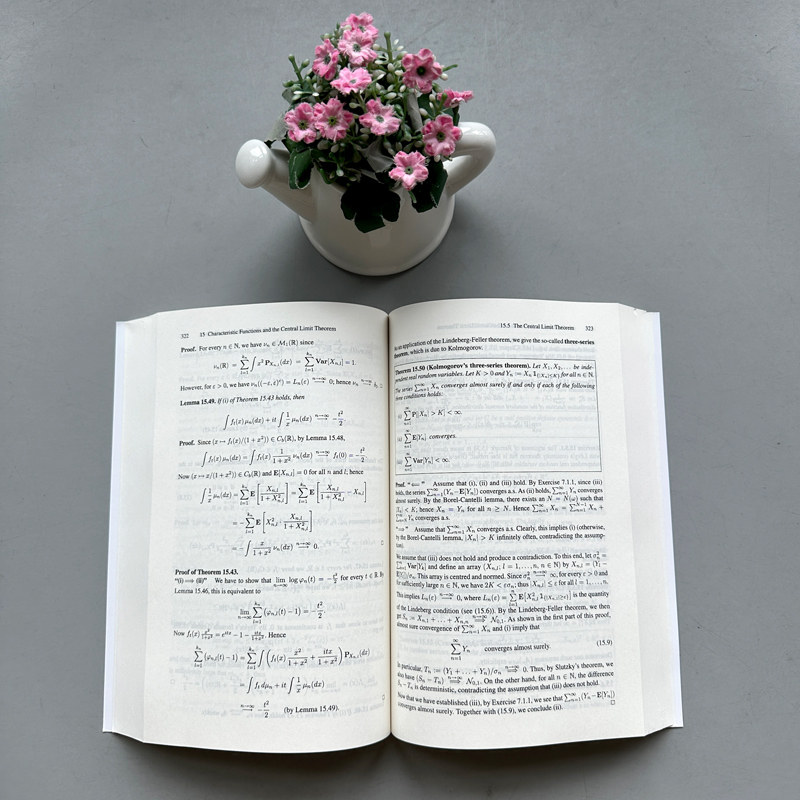 322 15 Characteristic Functions and the Central Limit Theorem
Proof. For every n ∈ ℕ, we have νₙ ∈ M₁(ℝ) since
νₙ(ℝ) = Σ_{l=1}^{kₙ} ∫ x² P_{X_{n,l}}(dx) = Σ_{l=1}^{kₙ} Var[X_{n,l}] = 1.
However, for ε > 0, we have νₙ([−ε, ε]ᶜ) = Lₙ(ε) →^{n→∞} 0; hence νₙ
Lemma 15.49. If (i) of Theorem 15.43 holds, then
∫ fₜ(x) μₙ(dx) + it ∫ 1/x μₙ(dx) →^{n→∞} −t²/2.
Proof. Since (x ↦ fₜ(x)/(1 + x²)) ∈ C_b(ℝ), by Lemma 15.48,
∫ fₜ(x) μₙ(dx) = ∫ fₜ(x) 1/(1+x²) νₙ(dx) →^{n→∞} fₜ(0) = −t²/2.
Now (x ↦ x/(1 + x²)) ∈ C_b(ℝ) and E[X_{n,l}] = 0 for all n and l; hence
∫ 1/x μₙ(dx) = Σ_{l=1}^{kₙ} E[X_{n,l}/(1+X²_{n,l})] = Σ_{l=1}^{kₙ} E[X_{n,l}/(1+X²_{n,l}) − X_{n,l}]
= −Σ_{l=1}^{kₙ} E[X²_{n,l} · X_{n,l}/(1+X²_{n,l})]
= −∫ x/(1+x²) νₙ(dx) →^{n→∞} 0. □
Proof of Theorem 15.43.
"(i) ⟹ (ii)" We have to show that lim_{n→∞} log φₙ(t) = −t²/2 for every t ∈ ℝ. By
Lemma 15.46, this is equivalent to
lim_{n→∞} Σ_{l=1}^{kₙ} (φ_{n,l}(t) − 1) = −t²/2.
Now fₜ(x) x²/(1+x²) = e^{itx} − 1 − itx/(1+x²). Hence
Σ_{l=1}^{kₙ} (φ_{n,l}(t) − 1) = Σ_{l=1}^{kₙ} ∫ (fₜ(x) x²/(1+x²) + itx/(1+x²)) P_{X_{n,l}}(dx)
= ∫ fₜ dμₙ + it ∫ 1/x μₙ(dx)
→^{n→∞} −t²/2 (by Lemma 15.49). □
15.5 The Central Limit Theorem 323
As an application of the Lindeberg-Feller theorem, we give the so-called three-series
theorem, which is due to Kolmogorov.
Theorem 15.50 (Kolmogorov's three-series theorem). Let X₁, X₂, … be inde-
pendent real random variables. Let K > 0 and Yₙ := Xₙ 1_{|Xₙ|≤K} for all n ∈ ℕ.
The series Σ_{n=1}^∞ Xₙ converges almost surely if and only if each of the following
three conditions holds:
(i) Σ_{n=1}^∞ P[|Xₙ| > K] < ∞.
(ii) Σ_{n=1}^∞ E[Yₙ] converges.
(iii) Σ_{n=1}^∞ Var[Yₙ] < ∞.
Proof. "⟸" Assume that (i), (ii) and (iii) hold. By Exercise 7.1.1, since (iii)
holds, the series Σ_{n=1}^∞ (Yₙ − E[Yₙ]) converges a.s. As (ii) holds, Σ_{n=1}^∞ Yₙ converges
almost surely. By the Borel-Cantelli lemma, there exists an N = N(ω) such that
|Xₙ| < K; hence Xₙ = Yₙ for all n ≥ N. Hence Σ_{n=1}^∞ Xₙ = Σ_{n=1}^{N−1} Xₙ +
Σ_{n=N}^∞ Yₙ converges a.s.
"⟹" Assume that Σ_{n=1}^∞ Xₙ converges a.s. Clearly, this implies (i) (otherwise,
by the Borel-Cantelli lemma, |Xₙ| > K infinitely often, contradicting the assump-
tion).
We assume that (iii) does not hold and produce a contradiction. To this end, let σₙ² =
Σ Var[Yₙ] and define an array (X_{n,l}; l = 1, …, n, n ∈ ℕ) by X_{n,l} = (Y_l −
E[Y_l])/σₙ. This array is centred and normed. Since σₙ² →^{n→∞} ∞, for every ε > 0 and
for sufficiently large n ∈ ℕ, we have 2K < εσₙ; thus |X_{n,l}| ≤ ε for all l = 1, …, n.
This implies Lₙ(ε) →^{n→∞} 0, where Lₙ(ε) = Σ_{l=1}^n E[X²_{n,l} 1_{|X_{n,l}|>ε}] is the quantity
of the Lindeberg condition (see (15.6)). By the Lindeberg-Feller theorem, we then
get Sₙ := X_{n,1} + … + X_{n,n} ⟹^{n→∞} N_{0,1}. As shown in the first part of this proof,
almost sure convergence of Σ_{n=1}^∞ Xₙ and (i) imply that
Σ_{n=1}^∞ Yₙ converges almost surely. (15.9)
In particular, Tₙ := (Y₁ + … + Yₙ)/σₙ ⟹^{n→∞} 0. Thus, by Slutzky's theorem, we
also have (Sₙ − Tₙ) ⟹^{n→∞} N_{0,1}. On the other hand, for all n ∈ ℕ, the difference
Sₙ − Tₙ is deterministic, contradicting the assumption that (iii) does not hold.
Now that we have established (iii), by Exercise 7.1.1, we see that Σ_{n=1}^∞ (Yₙ − E[Yₙ])
converges almost surely. Together with (15.9), we conclude (ii). □